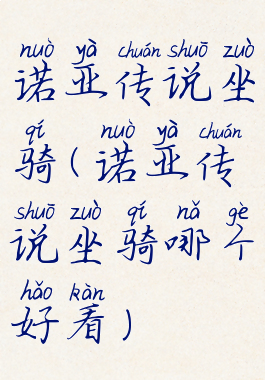 nuò yà chuán shuō zuò
诺亚传说坐
qí nuò yà chuán
骑(诺亚传
shuō zuò qí nǎ gè
说坐骑哪个
hǎo kàn
好看)